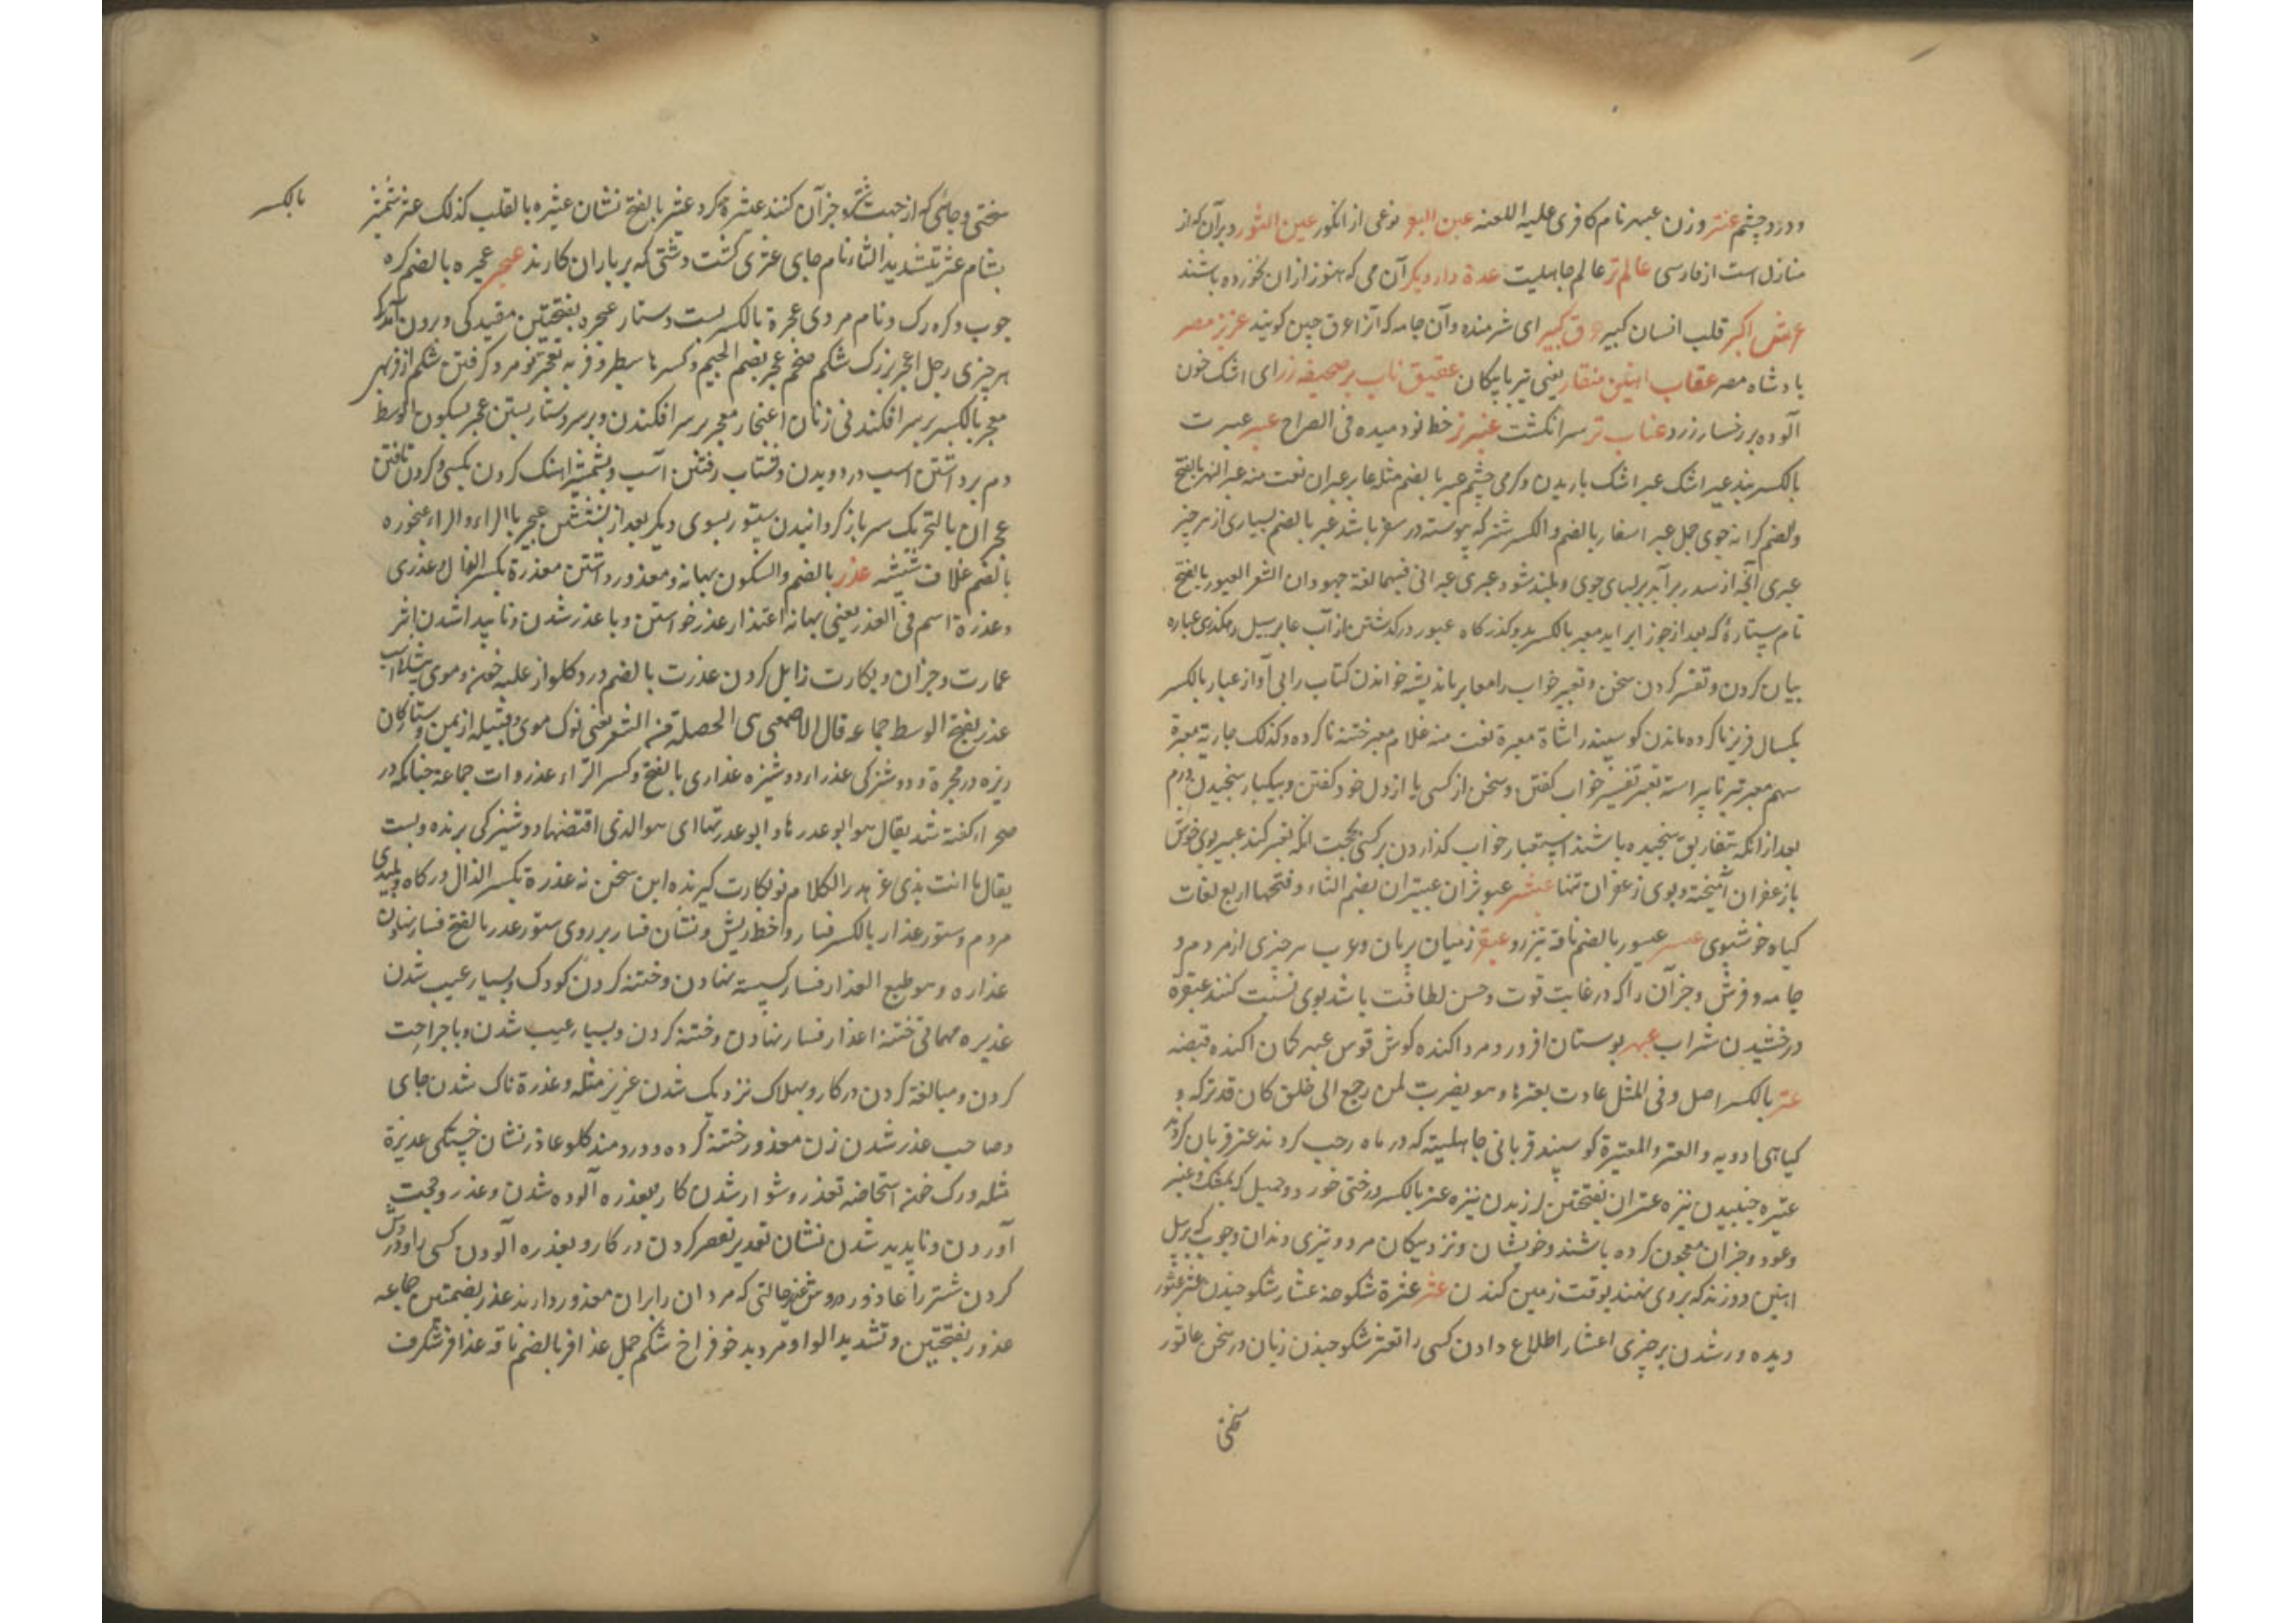 و درد چشم عنتر وزن عبهر نام کافری علیه اللعنه عین البقر نوعی از انکور عین الثور دبرآن که از
منازل است از فارسی عالم تر عالم جاهلیت عدة دار دیکر آن می که هنوز ازان نخورده باشند
عرش اکبر قلب انسان کبیر عرق کبیر ای شرمنده و آن جامه که آنرا عرق چین کویند عزیز مصر
پادشاه مصر عقاب آهنین منقار یعنی تیر با پیکان عقیق ناب بر صحیفه زر ای اشک خون
آلوده بر رخسار زرد عناب تر سر انکشت عنبر تر خط نو دمیده فی الصراح عبر عبرت
بالکسر پند عبر اشک عبر اشک باریدن و کرمی چشم عبر بالضم مثله عابر عبران نعت منه عبر النهر بالفتح
والضم کرانه جوی جمل عبر اسفار بالضم والکسر شتر که پیوسته در سفر باشد عبر بالضم بسیاری از هر چیز
عبری آنچه از سدر بر آید بر لبهای جوی و بلند شود عبری عبرانی فیهما لغة جهودان الشعر العبور بالفتح
نام ستاره که بعد از جوزا برآید معبر بالکسر پل و گذرکاه عبور درکذشتن از آب عابر سبیل رهکذری عباره
بیان کردن و تفسیر کردن سخن و تعبیر خواب را معابر باندیشه خواندن کتاب را بی آواز عبار بالکسر
یکسال فریز ناکرده ماندن کوسپند را شاة معبرة نعت منه غلام معبر ختنه ناکرده و کذلک جاریة معبرة
سهم معبر تیر ناپیراسته تعبیر تفسیر خواب کفتن و سخن از کسی یا از دل خود کفتن و بیکبار سنجیدن درم
بعد از انکه بتفاریق سنجیده باشند استعبار خواب کذاردن بر کسی بجهت آنکه تعبیر کند عبیر بوی خوش
با زعفران آمیخته و بوی زعفران تنها عبثر عبوثران عبیثران بضم الثاء و فتحها اربع لغات
کیاه خوشبوی عبسر عبسور بالضم ناقه تیز رو عبقر زمین پریان و عرب هر چیزی از مردم و
جامه و فرش و جز آن را که در غایت قوت و حسن لطافت باشد بوی نسبت کنند عبقرة
درخشیدن شراب عبهر بوستان افروز و مرد اکنده کوش قوس عبهر کمان اکنده قبضه
عتر بالکسر اصل و فی المثل عادت بعترها و هو یضرب لمن رجع الی خلق کان قد ترکه و
کیاهی ادویه والعتر والعتیرة کوسپند قربانی جاهلیته که در ماه رجب کردند عتر قربان کردند
عتره جنبیدن نیزه عتران بفتحتین لرزیدن نیزه عتر بالکسر درختی خورد و حمیل که بمشک و عنبر
و عود و جز آن معجون کرده باشند و خویشان و نزدیکان مرد و تیزی دندان و چوب که بر بیل
آهنین دوزند که بروی نهند بوقت زمین کندن عثر عثرة شکوخه عثار شکوخیدن عثر عثور
دیده ور شدن بر چیزی اعثار اطلاع دادن کسی را تعثر شکوخیدن زبان در سخن عاثور
سختی
سختی و جائی که از جهت شکار شیر و جز آن کنند عثیرة کرد عثیر بالفتح نشان عیثره بالقلب کذلک
بشام عثر بتشدید الثاء نام جای عثری کشت دشتی که بر باران کارند عجر عجره بالضم کره
چوب و کره رک و نام مردی عجرة بالکسر بست دستار عجره بفتحتین
هر چیزی رجل اعجر بزرک شکم ضخم عجر بضم الجیم و کسرها سطبر و فربه
معجر بالکسر بر سر افکندنی زنان اعتجار معجر بر سر افکندن و بر سر دستار بستن عجر بسکون الوسط
دم برداشتن اسپ در دویدن و شتاب رفتن آسپ و بشمشیر آهنک کردن بکسی و کردن تافتن
عجران بالتحریک سر باز کردانیدن ستور بسوی دیکر بعد از نشستن
بالضم غلاف شیشه عذر بالضم والسکون بهانه و معذور داشتن معذرة بکسر الذال و عذری
و عذرة اسم فی العذر یعنی بهانه اعتذار عذر خواستن و با عذر شدن و ناپیدا شدن اثر
عمارت و جز آن و بکارت زایل کردن عذرت بالضم درد کلو از غلبه خون و موی پیشانی اسپ
عذر بفتح الوسط جماعه قال الاصمعی هی الخصلة من الشعر یعنی نوک موی و فتیله از پشم و ستارکان
ریزه در مجرة و دوشیزکی عذراء دوشیزه عذاری بالفتح و کسر الراء عذروات جماعة چنانکه در
صحراء کفته شد یقال هو ابو عذرها و ابو عذرتها ای هو الذی اقتضها دوشیزکی برنده و بست
یقال ما انت بذی عذر هذا الکلام نو بکارت کیرنده این سخن نه عذرة بکسر الذال درکاه و پلیدی
مردم و ستور عذار بالکسر فسار و خط ریش و نشان فسار بر روی ستور عذر بالفتح فسار نهادن
عذاره و هو طبع العذار فسار کسسته نهادن و ختنه کردن کودک و بسیار عیب شدن
عذیره مهمانی ختنه اعذار فسار نهادن و ختنه کردن و بسیار عیب شدن و با جراحت
کردن و مبالغه کردن در کار و بهلاک نزدیک شدن عزیز مثله و عذرة ناک شدن جای
و صاحب عذر شدن زن معذور ختنه کرده و دردمند کلو عاذر نشان خستکی عذیرة
مثله و رک خون استحاضه تعذر دشوار شدن کار بعذره آلوده شدن و عذر و حجت
آوردن و ناپدید شدن نشان تعذیر تقصیر کردن در کار و بعذره آلودن کسی را
کردن شتر را عاذور حالتی که مردان را بران معذور دارند عذر بضمتین جماعه
عذور بفتحتین و تشدید الواو مرد بدخو فراخ شکم جمل عذافر بالضم ناقه عذافر شکرف
بالکسر